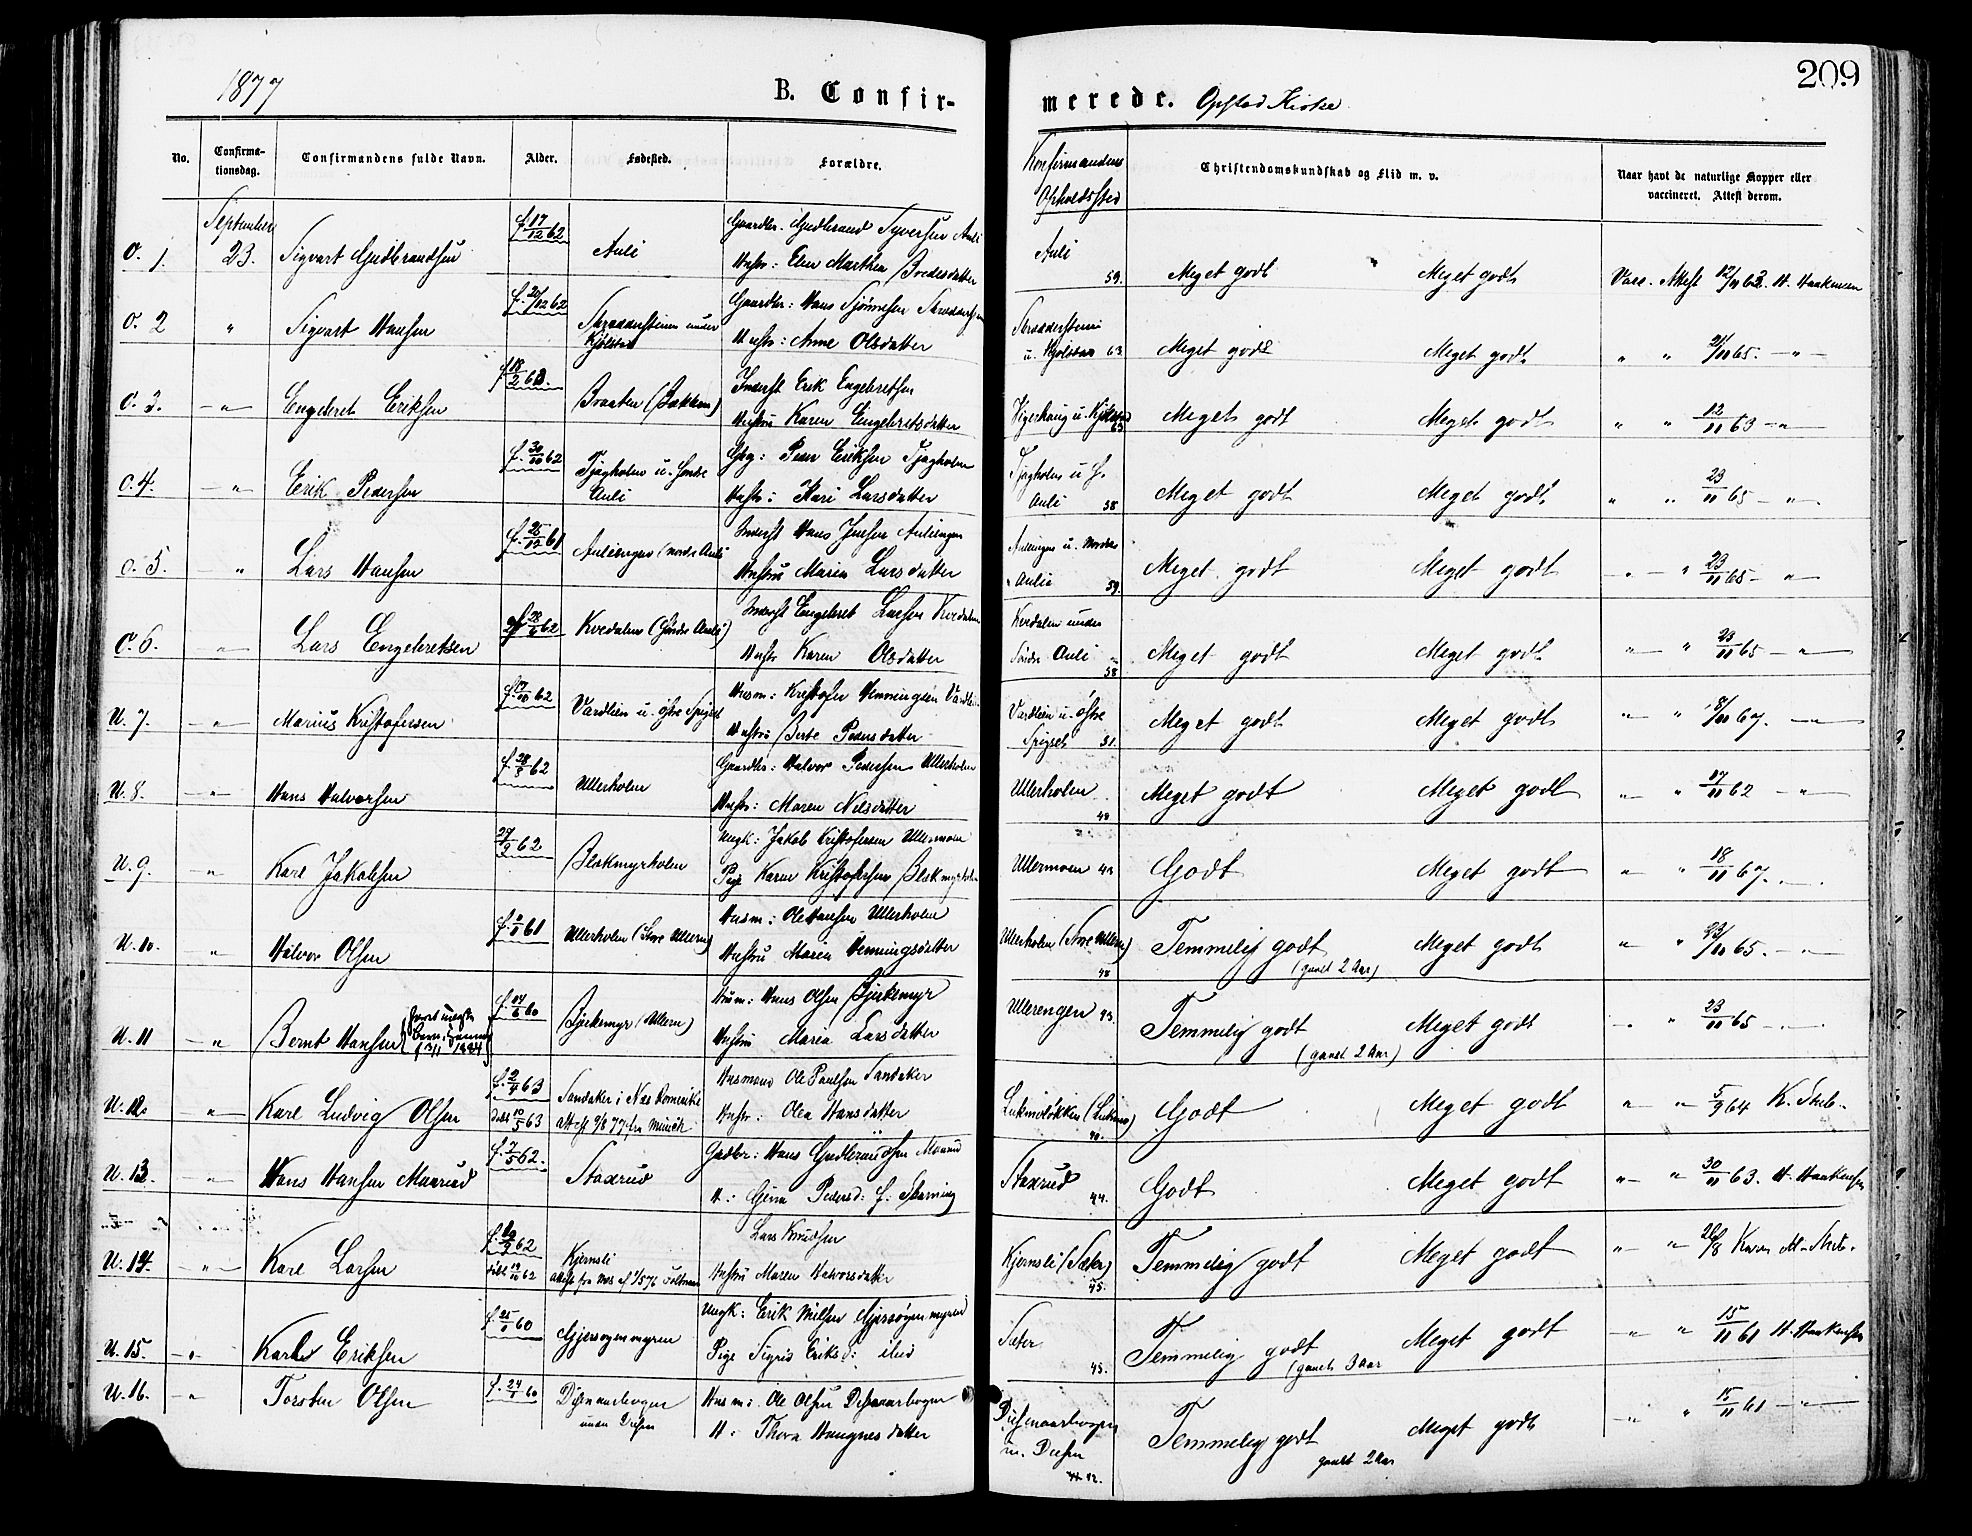 1877
B. Confir-
merede. Opstad Kirke
209
No.
Confirma-
tionsdag.
Confirmandens fulde Navn.
Alder.
Fødested.
Forældre.
Konfirmandens
Opholdssted
Christendomskundskab og Flid m. v.
Naar havt de naturlige Kopper eller
vaccineret. Attest derom.
September
O. 1. 23. Sigvart Gudbrandsen f. 17/12 62 Auli
Gaardbr. Gudbrand Syversen Auli
Hustr: Elen Marthea Bredesdatter
Auli 59. Meget godt Meget godt Vacc. Attest 12/11 62. H. Haakensen
O. 2 " Sigvart Hansen f. 20/12 62
under
Kjölstad
Gaardbr: Hans
Hustr: Anne Olsdatter
u. Kjölstad 63 Meget godt Meget godt " " 21/10 65. - " -
O. 3. - " - Engebret Eriksen f. 18/2 63. Braaten (Bakken)
Inderst Erik Engebretsen
Hustru Karen Engebretsdatter
u. Kjölstad 63 Meget godt Meget godt " " 12/11 63 - " -
O. 4. - " - Erik Pedersen f. 30/10 62 Tjagholm u. Søndre
Auli
Gbr: Peder Eriksen Tjagholm
Hustr: Kari Larsdatter
Tjagholm u. S.
Auli 58 Meget godt Meget godt " " 23/11 65 - " -
O. 5. - " Lars Hansen f. 25/12 61 Auliengen (nordr Auli
Inderst Hans Jensen Auliengen
Hustru Maria Larsdatter
Auliengen u. Nordre
Auli 59. Meget godt Meget godt - " - " 23/11 65 - " -
O. 6. - " - Lars Engebretsen 62 Kvedalen (Søndre Auli)
Inderst Engebret Larsen Kvedalen
Hustr Karen Olsdatter
Kvedalen under
Søndre Auli 58 Meget godt Meget godt - " - " 23/11 65 - " -
U. 7. - " - Marius Kristofersen f. 17/10 62 Vardlien u. østre Spigset
Husm: Kristofer Henningsen Vardlien
Hustru Berte Pedersdatter
Vardlien u. østre
Spigset 51. Meget godt Meget godt " - " 8/10 67. - " -
U. 8. - " - Hans Halvorsen f. 28/3 62 Ullerholen
Gaardbr: Halvor Pedersen Ullerholen
Hustr: Maren Nilsdatter
Ullerholen 48 Meget godt Meget godt " - " 17/11 62 - " -
U. 9. " Karl Jakobsen 27/2 62 Blakmyrholen
Ungk: Jakob Kristofersen Ullermoen
Pige Karen Kristofersen Blakmyrholen
Ullermoen 43 Godt Meget godt " " 18/11 67. - " -
U. 10. - " - Halvor Olsen 61 Ullerholen (Store Ullern)
Husm: Ole Hansen Ullerholen
Hustru Maren Henningsdatter
Ullerholen (Store Ullern) 48 Temmelig godt
(gaaet 2 Aar) Meget godt " " 23/10 65. - " -
U. 11 - " Bernt Hansen f. 14/6 60 Bjerkemyr (Ullern)
Husm: Hans Olsen Bjerkemyr
Hustru Maria Larsdatter
Ullerengen 43. Temmelig godt
(gaaet 2 Aar) Meget godt - " 23/11 65 - " -
U. 12. " Karl Ludvig Olsen f. 2/4 63
døbt 10/5 63
Sandaker i Nes Romerike
attest 9/8 77 fra Münch
Husmand Ole Paulsen Sandaker
Hustr: Olea Hansdatter
40. Godt Meget godt " " 5/9 64
U. 13. - " - Hans Hansen Maarud f. 7/5 62. Staxrud
Gadbr: Hans Gudbrandsen Maarud
H.: Gina Pedersd: f. Skarning
Staxrud 44. Godt Meget godt " - " 30/11 63. H. Haakensen
U. 14. - " - Karl Larsen 62
døbt 19/10 62
Kjernsli
Lars Knudsen
Hustru Maren Halvorsdatter
Kjernsli (Sæter) 45. Temmelig godt Meget godt " - "
U. 15. - " - Karl Eriksen f. 25/1 60 Gjersøgenmyren
Ungk: Erik Nilsen Gjersøgenmyren
Pige Sigrid Eriksd: ibid
Sæter 45. Temmelig godt
(gaaet 3 Aar Meget godt - " - " 15/11 61 H. Haakensen
U. 16. - " Torsten Olsen f. 24/1 60 Disenaarbogen
under Disen
Husm: Ole Olsen Disenaarbogen
H: Thora Haagnesdatter
Disenaarbogen
u. Disen 42. Temmelig godt
gaaet 2 Aar Meget godt - " - " 15/11 61 - " -